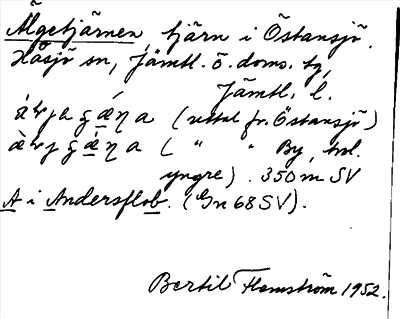 Älgetjärnen, tjärn i Östansjö,
Häsjö sn, Jämtl. ö. doms. tg,
Jämtl. l.
(uttal fr. Östansjö)
( " " By, hel.
yngre). 350 m SV
A i Andersflob. (Gn 68 SV).
Bertil Flemström 1952.